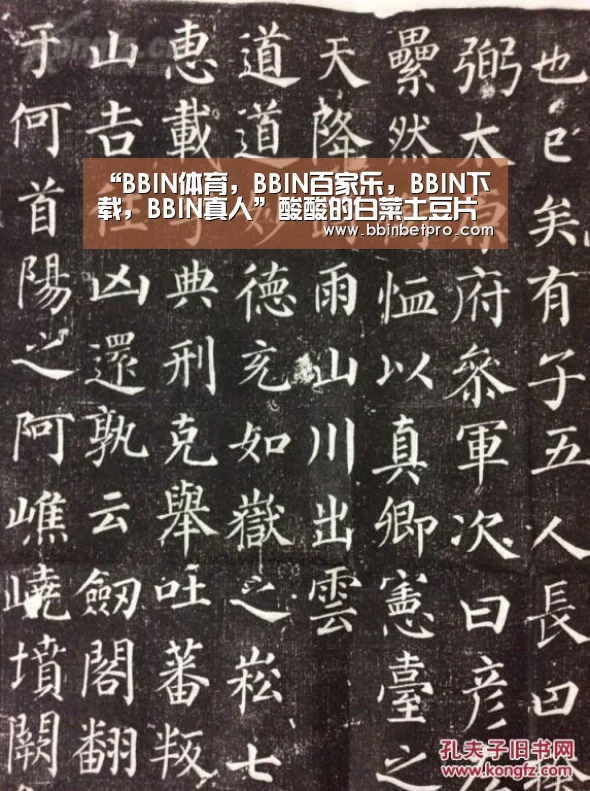 也已矣有子五人長曰
弼太原府叅軍次曰彦
纍然恤以真卿憲臺之
天降時雨山川出雲
道道妙德充如嶽之崧七
惠載典刑克舉吐蕃叛
山吉往凶還孰云劔閣翻
于何首陽之阿嶕嶢墳闕
“BBIN体育，BBIN百家乐，BBIN下
载，BBIN真人”酸酸的白菜土豆片
www.bbinbetpro.com
孔夫子旧书网
www.kongfz.com